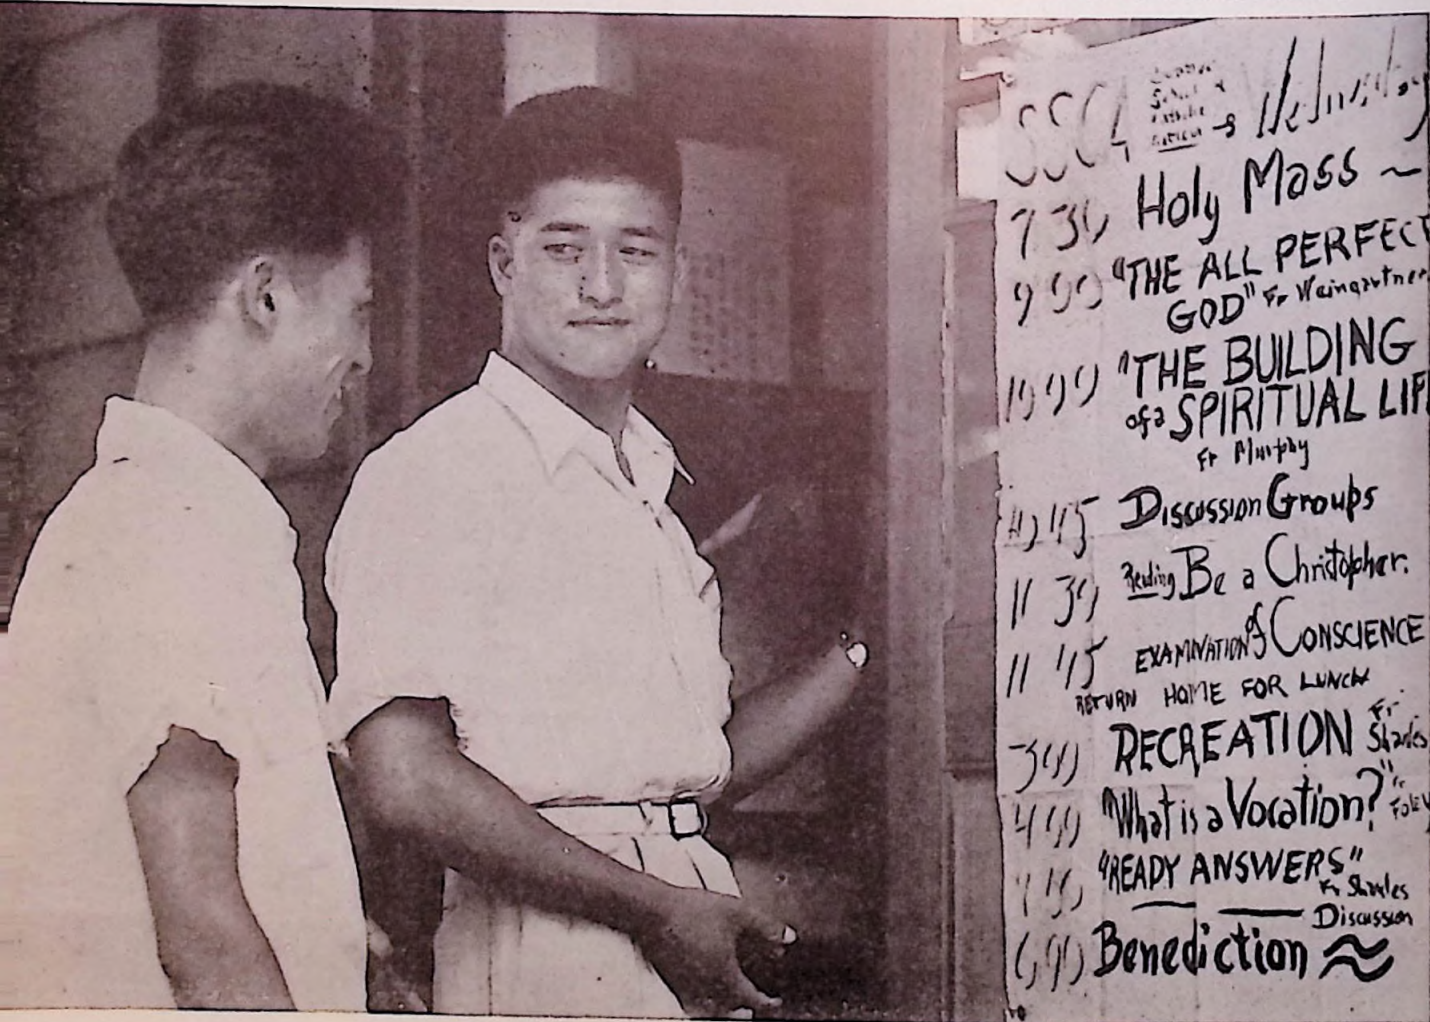 SSCA Summer
School of
Catholic
Action → Wednesday
7 30 Holy Mass ~
9 00 "THE ALL PERFECT
GOD" Fr Weingartner
10 00 "THE BUILDING
of a SPIRITUAL LIF
Fr Murphy
10 45 Discussion Groups
11 30 Reading Be a Christopher.
11 45 EXAMINATION of CONSCIENCE
RETURN HOME FOR LUNCH
3 00 RECREATION Fr Sharles
4 00 "What is a Vocation?" Fr Foley
"READY ANSWERS"
Fr Sharles
Discussion
6 00 Benediction